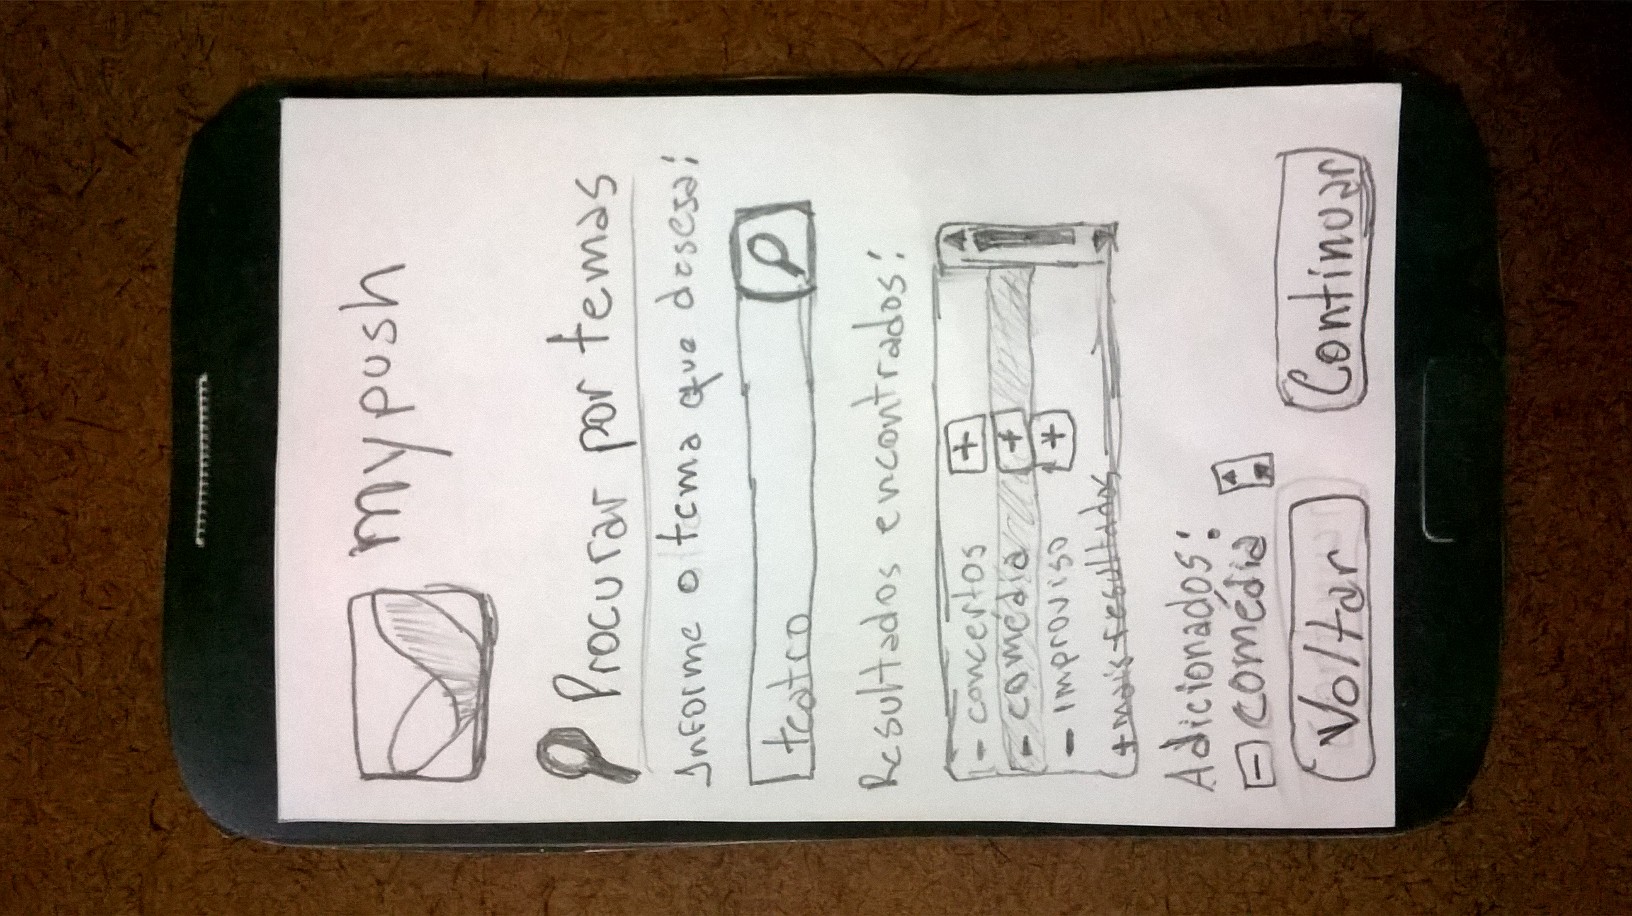 mypush
Procurar por temas
Informe o tema que deseja:
teatro
Resultados encontrados:
- concertos +
- comédia +
- improviso +
+ mais resultados
Adicionados:
- comédia
Voltar
Continuar